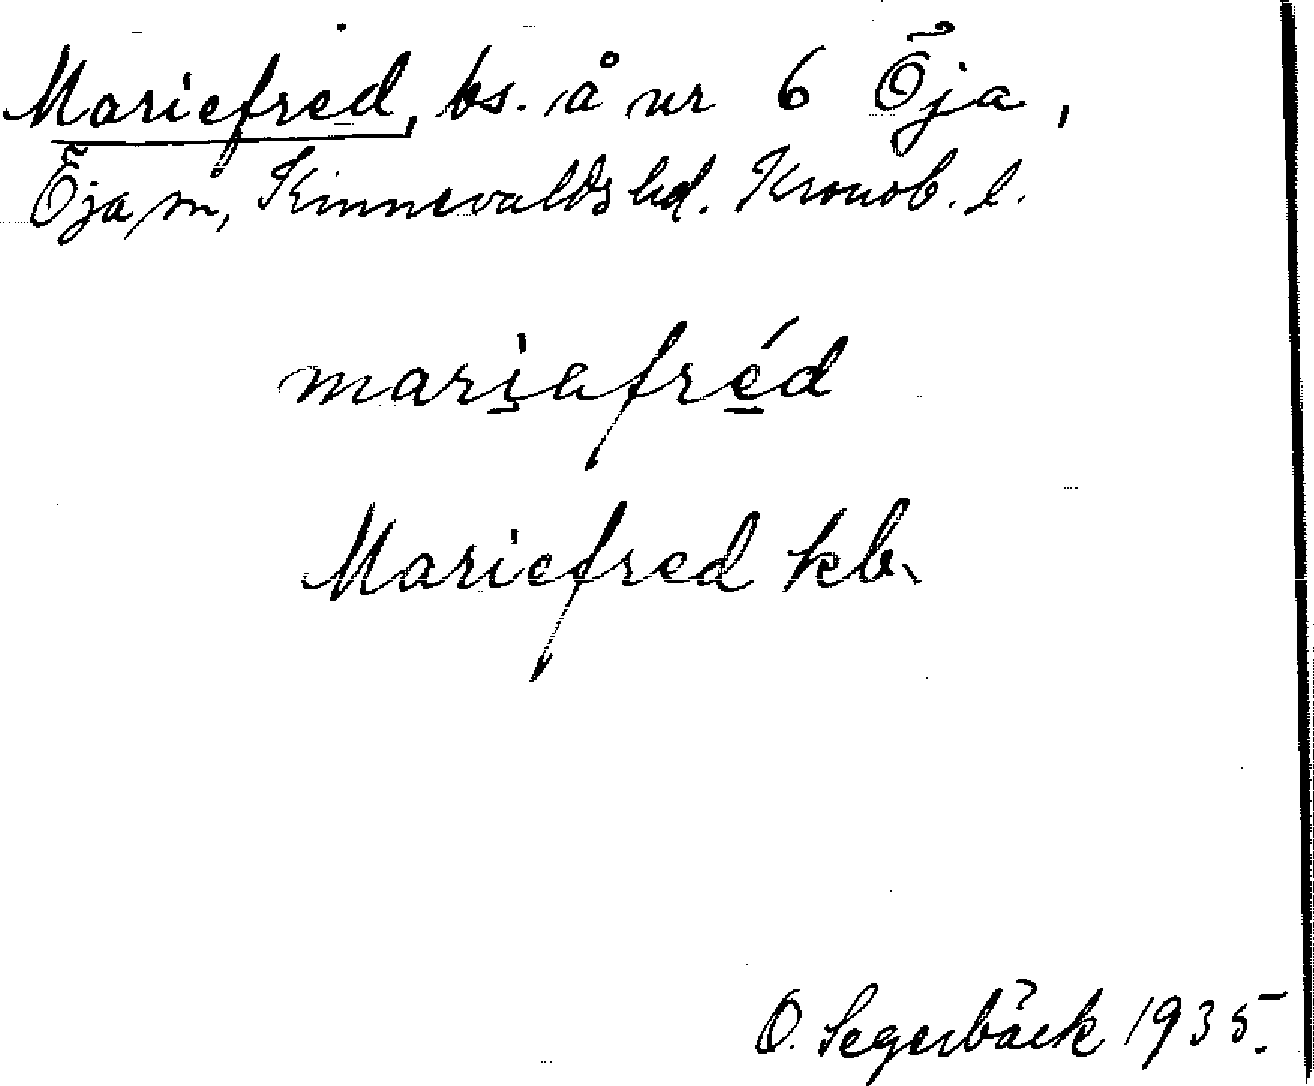 Mariefred, bs. å nr 6 Öja,
Öja sn, Kinnevalds hd. Kronob. l.
mariafréd
Mariefred kb.
O. Segerbäck 1935.